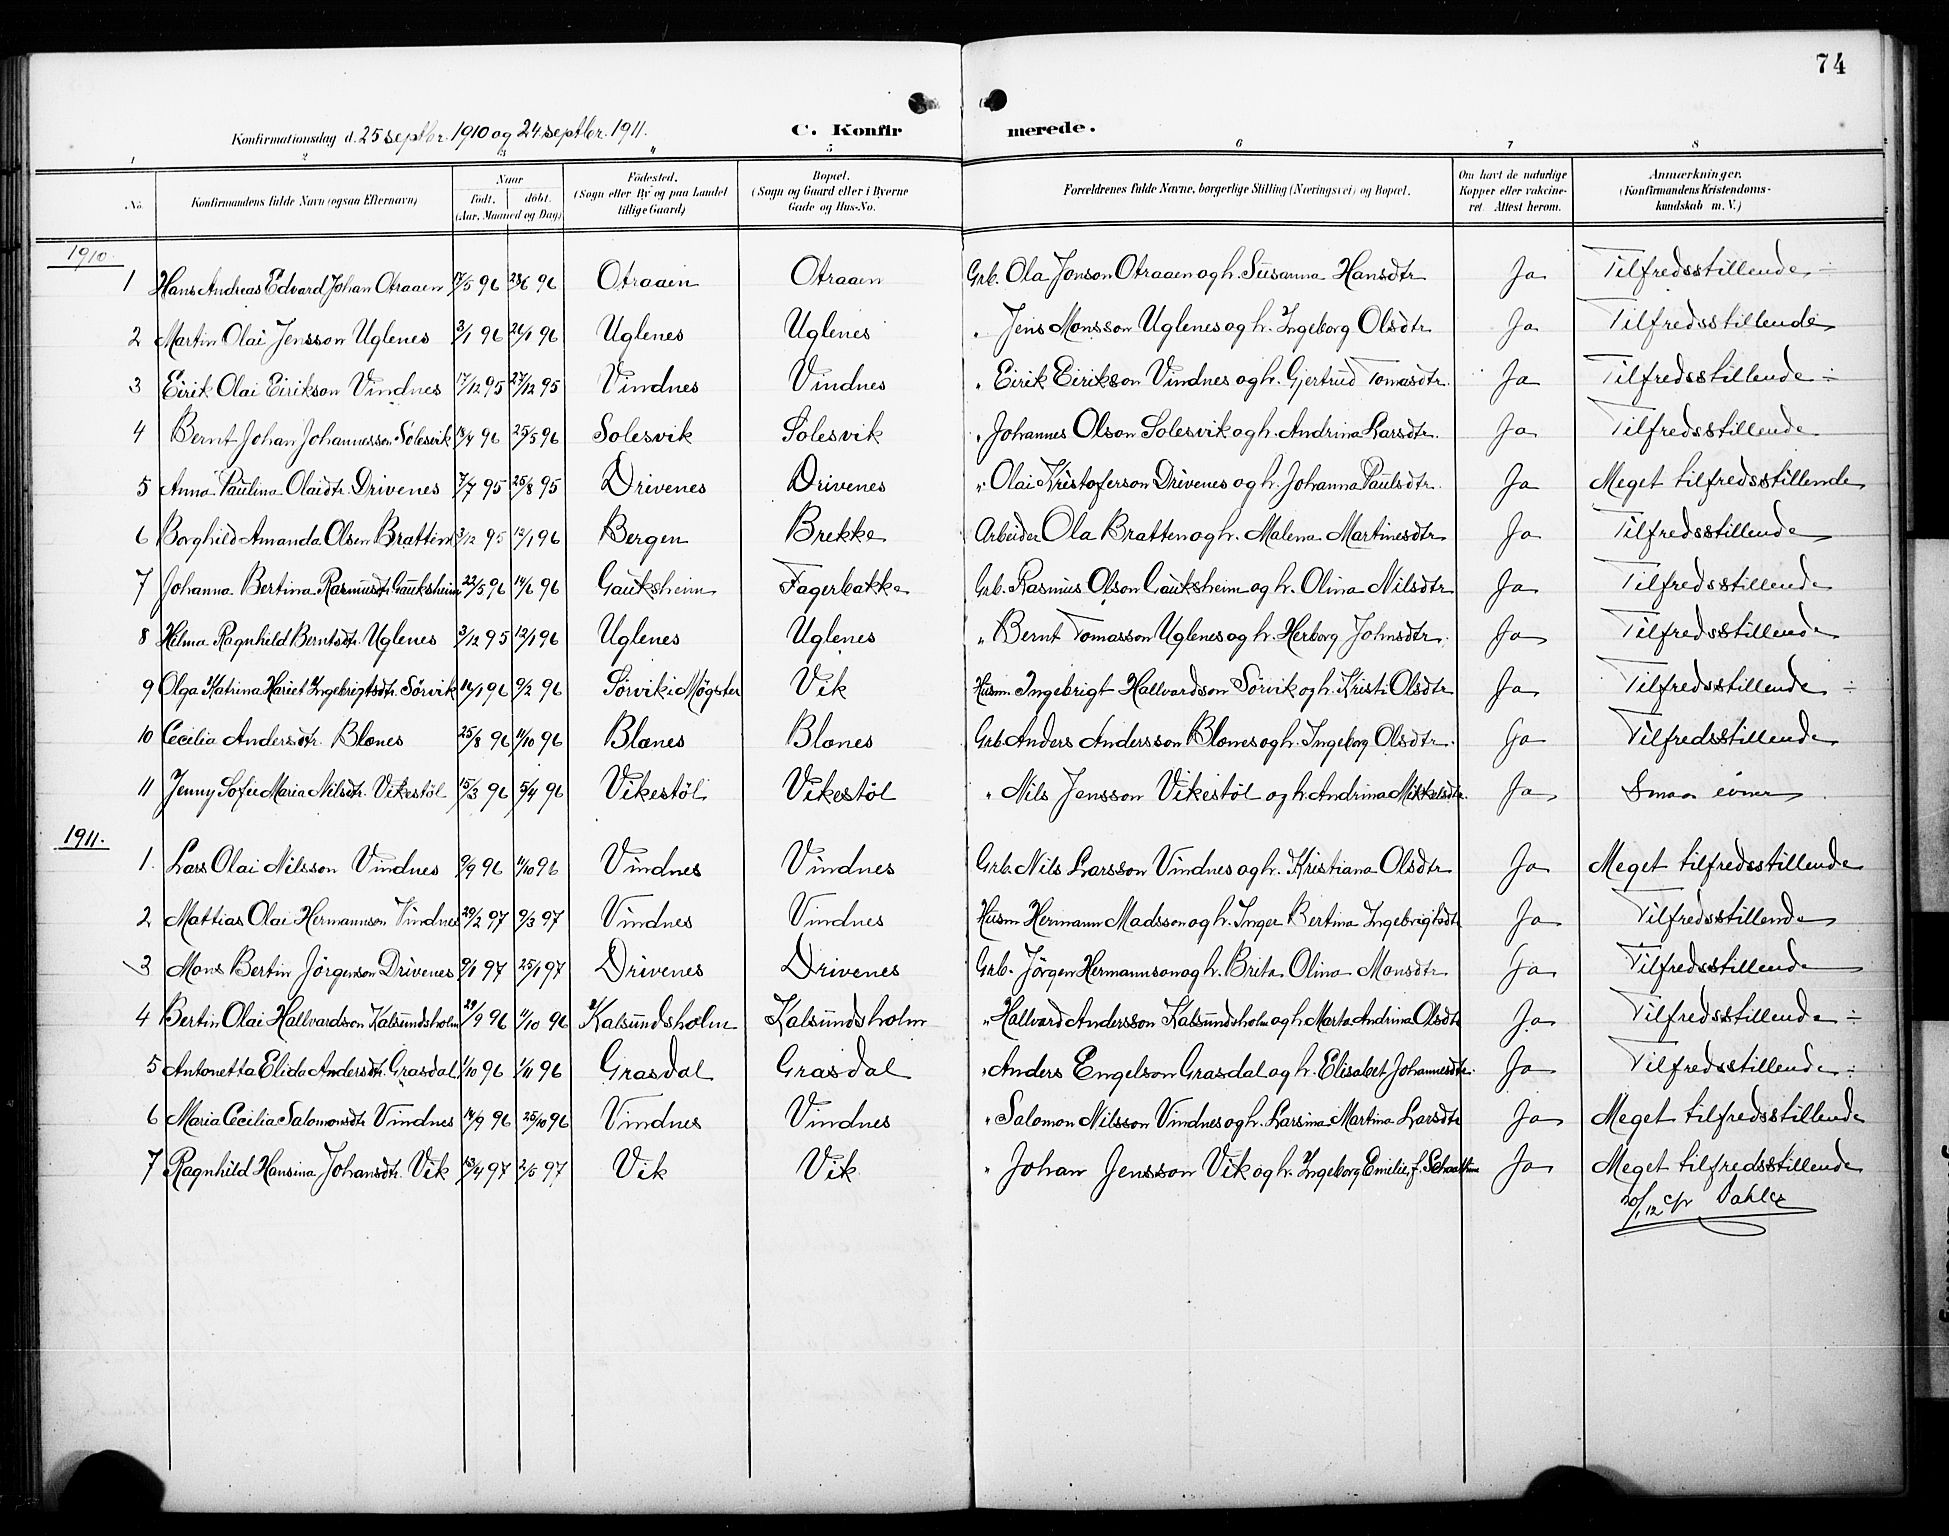 74
Konfirmationsdag d. 25 septbr. 1910 og 24 septbr. 1911. C. Konfirmerede.
1 2 3 4 5 6 7 8
No. Konfirmandens fulde Navn (ogsaa Efternavn) Naar født. døbt. (Aar, Maaned og Dag) Fødested. (Sogn eller By og paa Landet tillige Gaard) Bopæl. (Sogn og Gaard eller i Byerne Gade og Hus-No. Forældrenes fulde Navne, borgerlige Stilling (Næringsvei) og Bopæl. Om havt de naturlige Kopper eller vakcineret. Attest herom. Anmærkninger. (Konfirmandens Kristendomskundskab m. V.)
1910.
1 Hans Andreas Edvard Johan Otraaen 17/5 96 28/6 96 Otraaen Otraaen Grb. Ola Jonson Otraaen og h. Susanna Hansdtr Ja Tilfredsstillende ÷
2 Martin Olai Jensson Uglenes 3/1 96 26/1 96 Uglenes Uglenes " Jens Monsson Uglenes og h. Ingeborg Olsdtr Ja Tilfredsstillende
3 Eirik Olai Eirikson Vindnes 17/12 95 27/12 95 Vindnes Vindnes " Eirik Eirikson Vindnes og h. Gjertrud Tomasdtr. Ja Tilfredsstillende ÷
4 Bernt Johan Johannesson Solesvik 18/4 96 25/5 96 Solesvik Solesvik " Johannes Olson Solesvik og h. Andrina Larsdtr. Ja Tilfredsstillende
5 Anna Paulina Olaidtr. Drivenes 7/7 95 25/8 95 Drivenes Drivenes " Olai Kristoferson Drivenes og h. Johanna Paulsdtr. Ja Meget tilfredsstillende
6 Borghild Amanda Olsen Bratten 3/12 95 12/1 96 Bergen Brekke Arbeider Ola Bratten og h. Malena Martinesdtr Ja Tilfredsstillende
7 Johanna Bertina Rasmusdt. Gauksheim 22/5 96 14/6 96 Gauksheim Fagerbakke Grb. Rasmus Olson Gauksheim og h. Olina Nilsdtr Ja Tilfredsstillende
8 Helma Ragnhild Berntsdtr. Uglenes 3/12 95 12/1 96 Uglenes Uglenes " Bernt Tomasson Uglenes og h. Herborg Johnsdtr. Ja Tilfredsstillende
9 Olga Katrina Hariet Ingebrigtsdtr. Sörvik 14/1 96 9/2 96 Sörvik i Møgster Vik Husm. Ingebrigt Hallvardson Sörvik og h. Kristi Olsdtr Ja Tilfredsstillende ÷
10 Cecilia Andersdtr. Blænes 25/8 96 11/10 96 Blænes Blænes Grb. Anders Andersson Blænes og h. Ingeborg Olsdtr. Ja Tilfredsstillende
11 Jenny Sofie Maria Nilsdtr. Vikestöl 15/3 96 5/4 96 Vikestöl Vikestöl " Nils Jensson Vikestöl og h. Andrina Mikkelsdtr. Ja Smaa evner
1911.
1. Lars Olai Nilsson Vindnes 9/9 96 11/10 96 Vindnes Vindnes Grb. Nils Larsson Vindnes og h. Kristiana Olsdtr Ja Meget tilfredsstillende
2 Mattias Olai Hermannson Vindnes 20/2 97 9/3 97 Vindnes Vindnes Husm Hermann Madsson og h. Inger Bertina Ingebrigtsdtr Ja Tilfredsstillende
3 Mons Bertin Jörgenson Drivenes 9/1 97 25/1 97 Drivenes Drivenes Grb. Jörgen Hermannson og h. Brita Olina Monsdtr Ja Tilfredsstillende
4 Bertin Olai Hallvardsson Kalsundsholm 29/9 96 11/10 96 Kalsundsholm Kalsundsholm " Hallvard Andersson Kalsundsholm og h. Marta Andrina Olsdtr Ja Tilfredsstillende ÷
5 Antonetta Elida Andersdtr. Grasdal 1/10 96 1/11 96 Grasdal Grasdal " Anders Engelson Grasdal og h. Elisabet Johannesdtr. Ja Tilfredsstillende ÷
6 Maria Cecilia Salomonsdtr Vindnes 14/9 96 25/10 96 Vindnes Vindnes " Salomon Nilsson Vindnes og h. Larsina Martina Larsdtr Ja Meget tilfredsstillende
7 Ragnhild Hansina Johansdtr. Vik 13/4 97 2/5 97 Vik Vik " Johan Jensson Vik og h. Ingeborg Emilie f. Ja Meget tilfredsstillende
20/1 12 Dahle